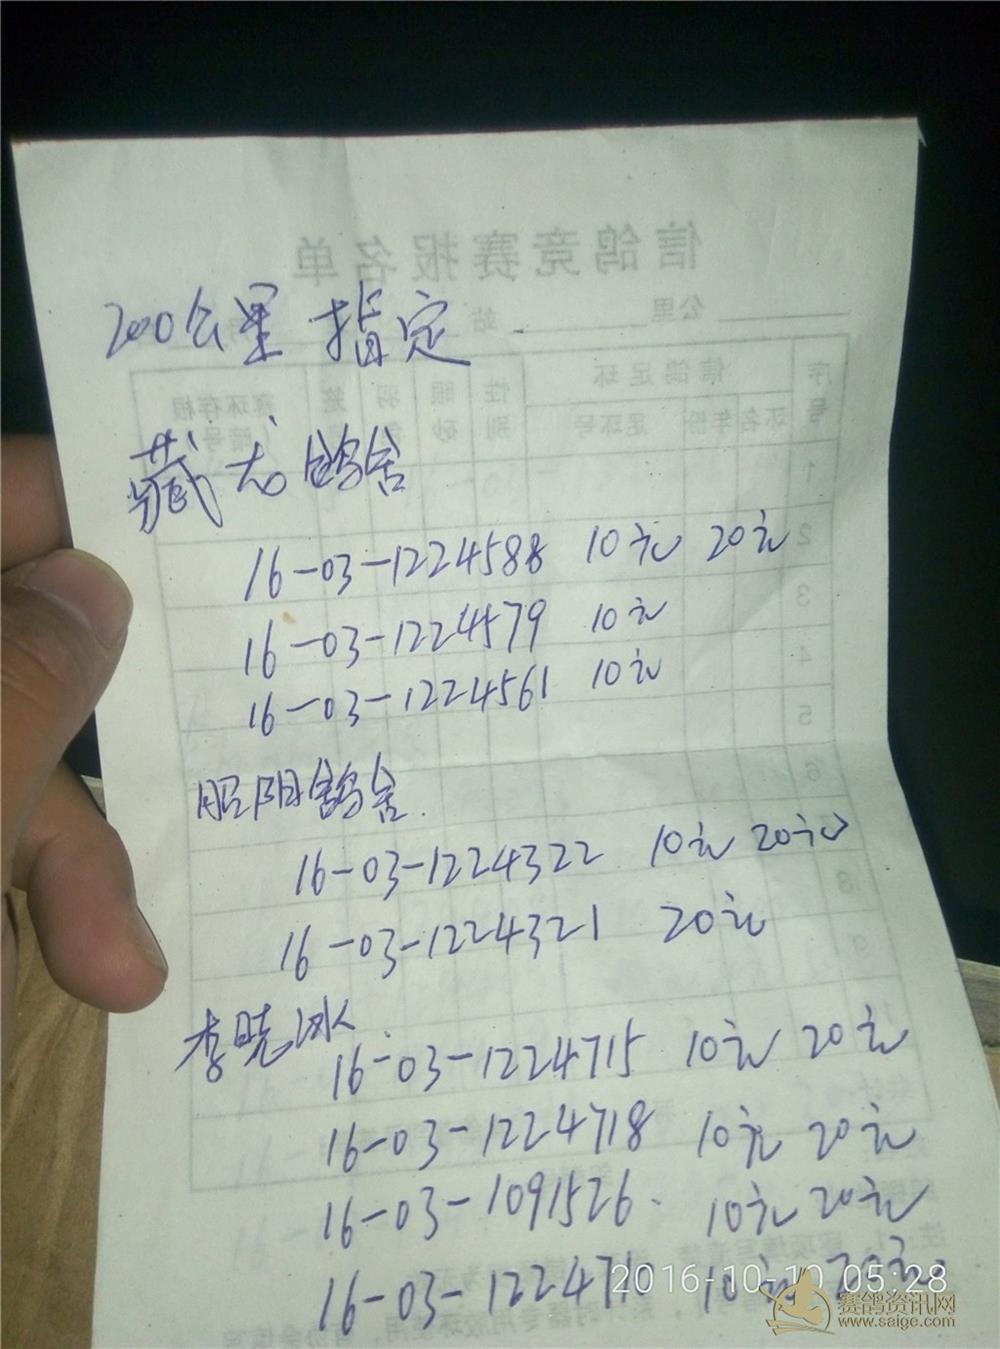 信鸽竞赛报名单
公里 站
200公里 指定
序号 信鸽足环 性别 眼砂 羽色
环名 年份 足环号
藏龙鸽舍
16-03-1224588 10元 20元
16-03-1224579 10元
16-03-1224561 10元
昭阳鸽舍
16-03-1224322 10元 20元
16-03-1224321 20元
李晓冰
16-03-1224715 10元 20元
16-03-1224718 10元 20元
16-03-1091526 10元 20元
16-03-1224710 10元 20元
2016-10-10 05:28
赛鸽资讯网
www.saige.com